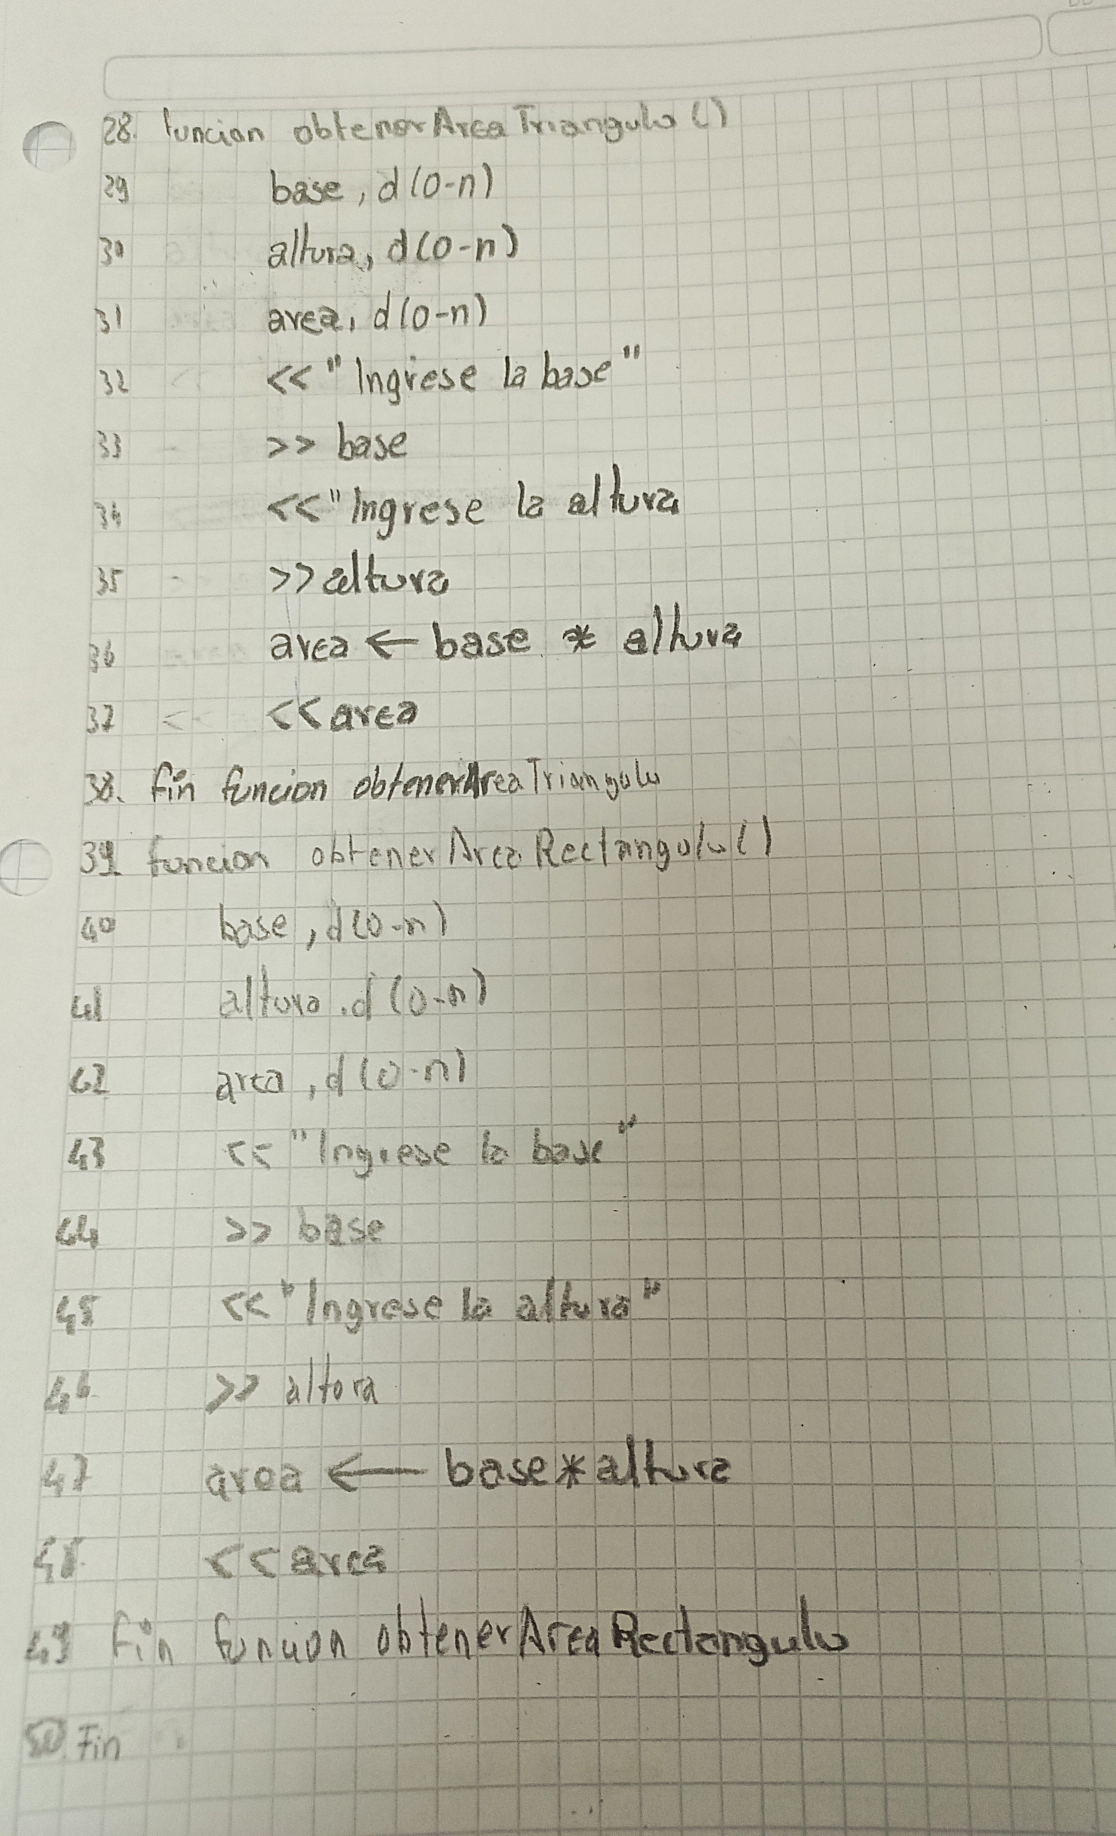 28. funcion obtenerAreaTriangulo ()
29 base, d(0-n)
30 altura, d(0-n)
31 area, d(0-n)
32 << "Ingrese la base"
33 >> base
34 << "Ingrese la altura
35 >> altura
36 area ← base * altura
37 << area
38. fin funcion obtenerAreaTriangulo
39 funcion obtenerAreaRectangulo()
40 base, d(0-n)
41 altura, d(0-n)
42 area, d(0-n)
43 << "Ingrese la base"
44 >> base
45 << "Ingrese la altura"
46 >> altura
47 area ← base * altura
48. << area
49 fin funcion obtenerAreaRectangulo
50. Fin